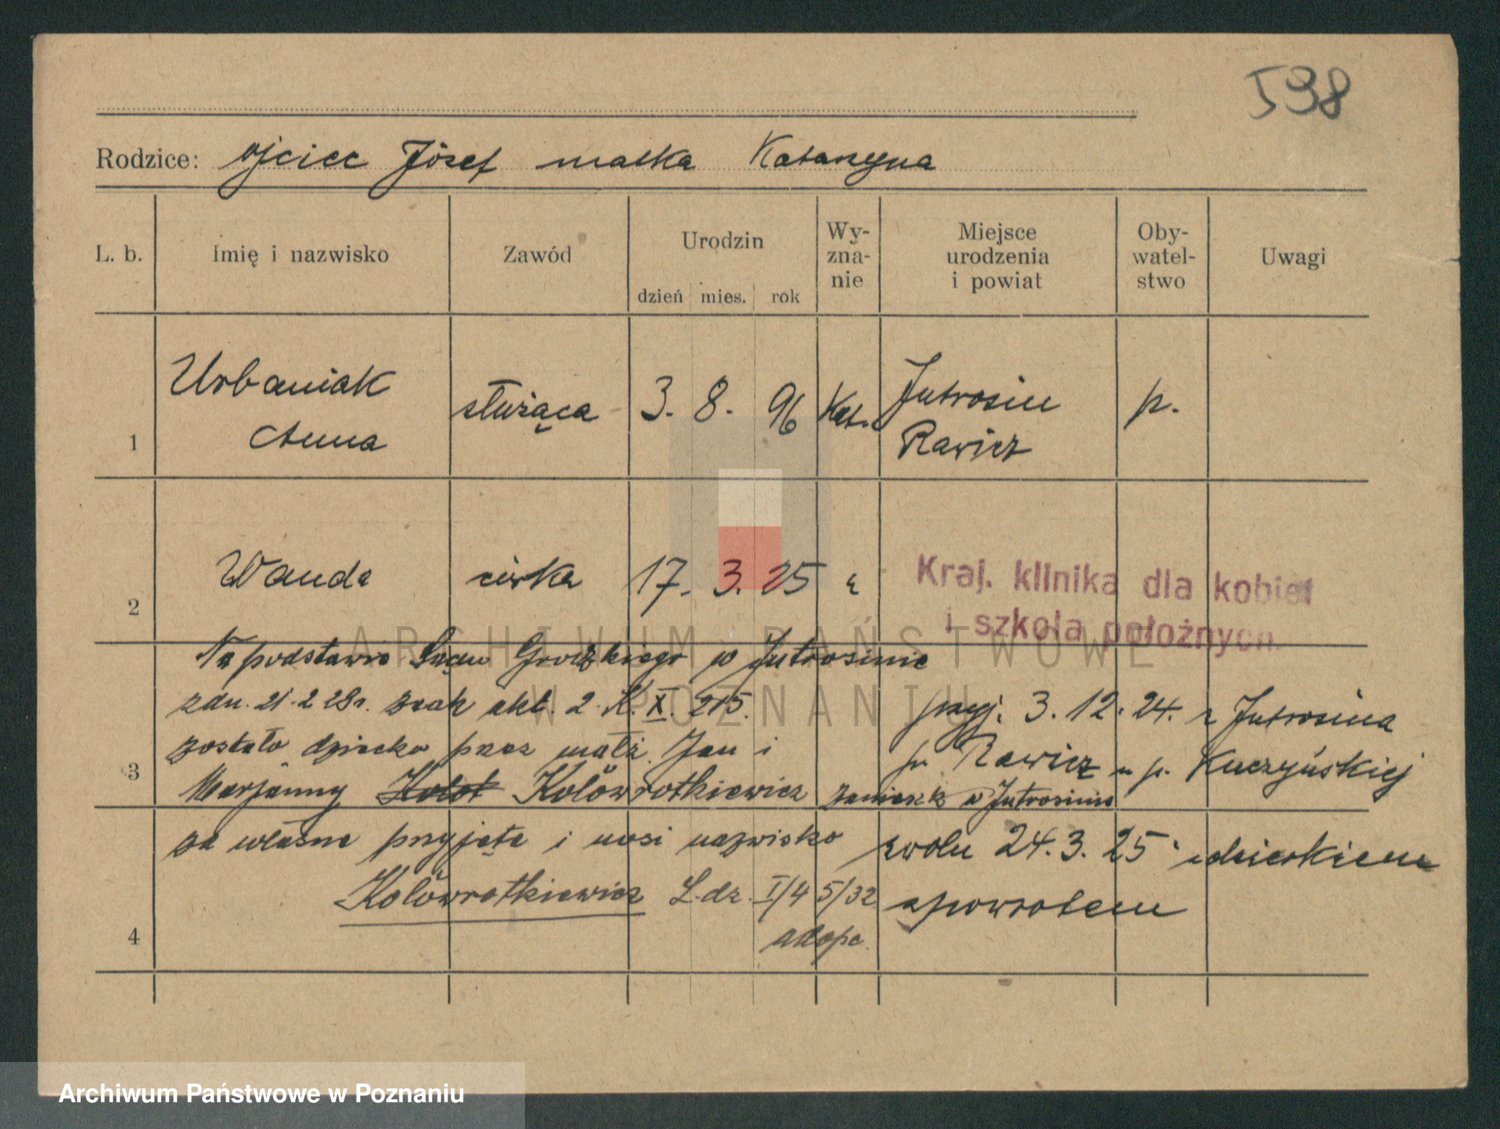 598
Rodzice: ojciec Józef matka Katarzyna
L. b. Imię i nazwisko Zawód Urodzin dzień mies. rok Wy-zna-nie Miejsce urodzenia i powiat Oby-watel-stwo Uwagi
1 Urbaniak Anna służąca 3. 8. 96 Kat. Jutrosin Rawicz p.
2 Wanda córka 17. 3. 25
Kraj. klinika dla kobiet
i szkola położnych.
ARCHIWUM PAŃSTWOWE
W POZNANIU
Na podstawie Sądu Grodzkiego w Jutrosinie
z dn. 21.2 28r. znak akt. 2. K. X. 215.
zostało dziecko przez małż. Jan i
3 Marjanny Kołot Kołówrotkiewicz
za własne przyjęte i nosi nazwisko
Kołówrotkiewicz L. dz. I/4 5/32
4 adopc.
przyj. 3. 12. 24. z Jutrosina
Rawicz u p. Kuczyńskiej
zamieszk w Jutrosinie
zwoln 24. 3. 25 z dzieckiem
z powrotem
Archiwum Państwowe w Poznaniu